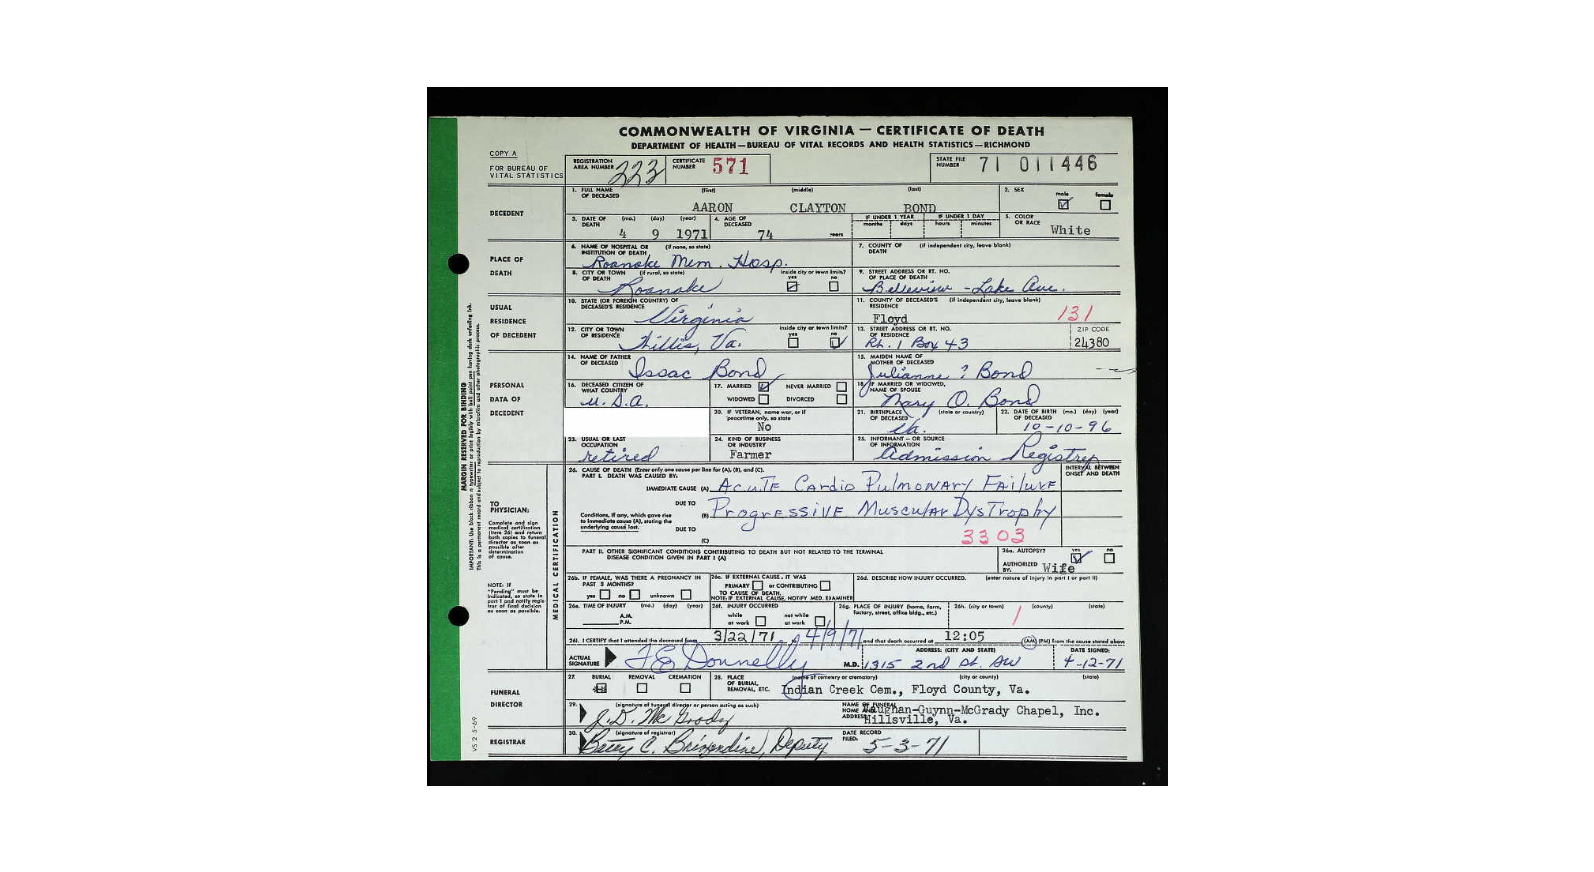 COMMONWEALTH OF VIRGINIA — CERTIFICATE OF DEATH
DEPARTMENT OF HEALTH—BUREAU OF VITAL RECORDS AND HEALTH STATISTICS—RICHMOND
COPY A
FOR BUREAU OF VITAL STATISTICS
REGISTRATION AREA NUMBER 223 CERTIFICATE NUMBER 571 STATE FILE NUMBER 71 011446
DECEDENT
1. FULL NAME OF DECEASED (first) (middle) (last) 2. SEX male female
AARON CLAYTON BOND
3. DATE OF DEATH (mo.) (day) (year) 4. AGE OF DECEASED IF UNDER 1 YEAR IF UNDER 1 DAY 5. COLOR OR RACE
months days hours minutes
4 9 1971 74 years White
PLACE OF DEATH
6. NAME OF HOSPITAL OR INSTITUTION OF DEATH (if none, so state) 7. COUNTY OF DEATH (if independent city, leave blank)
Roanoke Mem. Hosp.
8. CITY OR TOWN OF DEATH (if rural, so state) inside city or town limits? yes no 9. STREET ADDRESS OR RT. NO. OF PLACE OF DEATH
Roanoke Belleview - Lake Ave.
USUAL RESIDENCE OF DECEDENT
10. STATE (OR FOREIGN COUNTRY) OF DECEASED'S RESIDENCE 11. COUNTY OF DECEASED'S RESIDENCE (if independent city, leave blank)
Virginia Floyd 131
12. CITY OR TOWN OF RESIDENCE inside city or town limits? yes no 13. STREET ADDRESS OR RT. NO. OF RESIDENCE ZIP CODE
Willis, Va. Rt. 1 Box 43 24380
PERSONAL DATA OF DECEDENT
14. NAME OF FATHER OF DECEASED 15. MAIDEN NAME OF MOTHER OF DECEASED
Issac Bond Julianne ? Bond
16. DECEASED CITIZEN OF WHAT COUNTRY 17. MARRIED NEVER MARRIED WIDOWED DIVORCED 18. IF MARRIED OR WIDOWED, NAME OF SPOUSE
U.S.A. Mary O. Bond
20. IF VETERAN, name war, or if peacetime only, so state 21. BIRTHPLACE OF DECEASED (state or country) 22. DATE OF BIRTH OF DECEASED (mo.) (day) (year)
No Va. 10-10-96
23. USUAL OR LAST OCCUPATION 24. KIND OF BUSINESS OR INDUSTRY 25. INFORMANT — OR SOURCE OF INFORMATION
retired Farmer Admission Registry
MARGIN RESERVED FOR BINDING
TO PHYSICIAN:
Complete and sign medical certification (item 26) and return both copies to funeral director as soon as possible after determination of cause.
NOTE: If "Pending" must be indicated, so state in part I and notify registrar of final decision as soon as possible.
MEDICAL CERTIFICATION
26. CAUSE OF DEATH (Enter only one cause per line for (A), (B), and (C). INTERVAL BETWEEN ONSET AND DEATH
PART I. DEATH WAS CAUSED BY:
IMMEDIATE CAUSE (A) Acute Cardio Pulmonary Failure
DUE TO
Conditions, if any, which gave rise to immediate cause (A), stating the underlying cause last. (B) Progressive Muscular Dystrophy
DUE TO
(C) 3303
PART II. OTHER SIGNIFICANT CONDITIONS CONTRIBUTING TO DEATH BUT NOT RELATED TO THE TERMINAL DISEASE CONDITION GIVEN IN PART I (A)
26a. AUTOPSY? yes no
AUTHORIZED BY. Wife
26b. IF FEMALE, WAS THERE A PREGNANCY IN PAST 3 MONTHS? yes no unknown
26c. IF EXTERNAL CAUSE, IT WAS PRIMARY or CONTRIBUTING TO CAUSE OF DEATH. NOTE: IF EXTERNAL CAUSE, NOTIFY MED. EXAMINER
26d. DESCRIBE HOW INJURY OCCURRED. (enter nature of injury in part I or part II)
26e. TIME OF INJURY (mo.) (day) (year) A.M. P.M.
26f. INJURY OCCURRED while at work not while at work
26g. PLACE OF INJURY (home, farm, factory, street, office bldg., etc.)
26h. (city or town) (county) (state)
26i. I CERTIFY that I attended the deceased from 3/22/71 4/9/71 and that death occurred at 12:05 (AM) (PM) from the cause stated above
ACTUAL SIGNATURE M.D. ADDRESS: (CITY AND STATE) DATE SIGNED:
F E Donnelly 1315 2nd St. SW 4-12-71
FUNERAL DIRECTOR
27. BURIAL REMOVAL CREMATION 28. PLACE OF BURIAL, REMOVAL, ETC. (name of cemetery or crematory) (city or county) (state)
Indian Creek Cem., Floyd County, Va.
29. (signature of funeral director or person acting as such) NAME OF FUNERAL HOME AND ADDRESS Vaughan-Guynn-McGrady Chapel, Inc.
J. D. McGrady Hillsville, Va.
REGISTRAR
30. (signature of registrar) DATE RECORD FILED:
Betty C. Brizendine, Deputy 5-3-71
VS 2 5-69